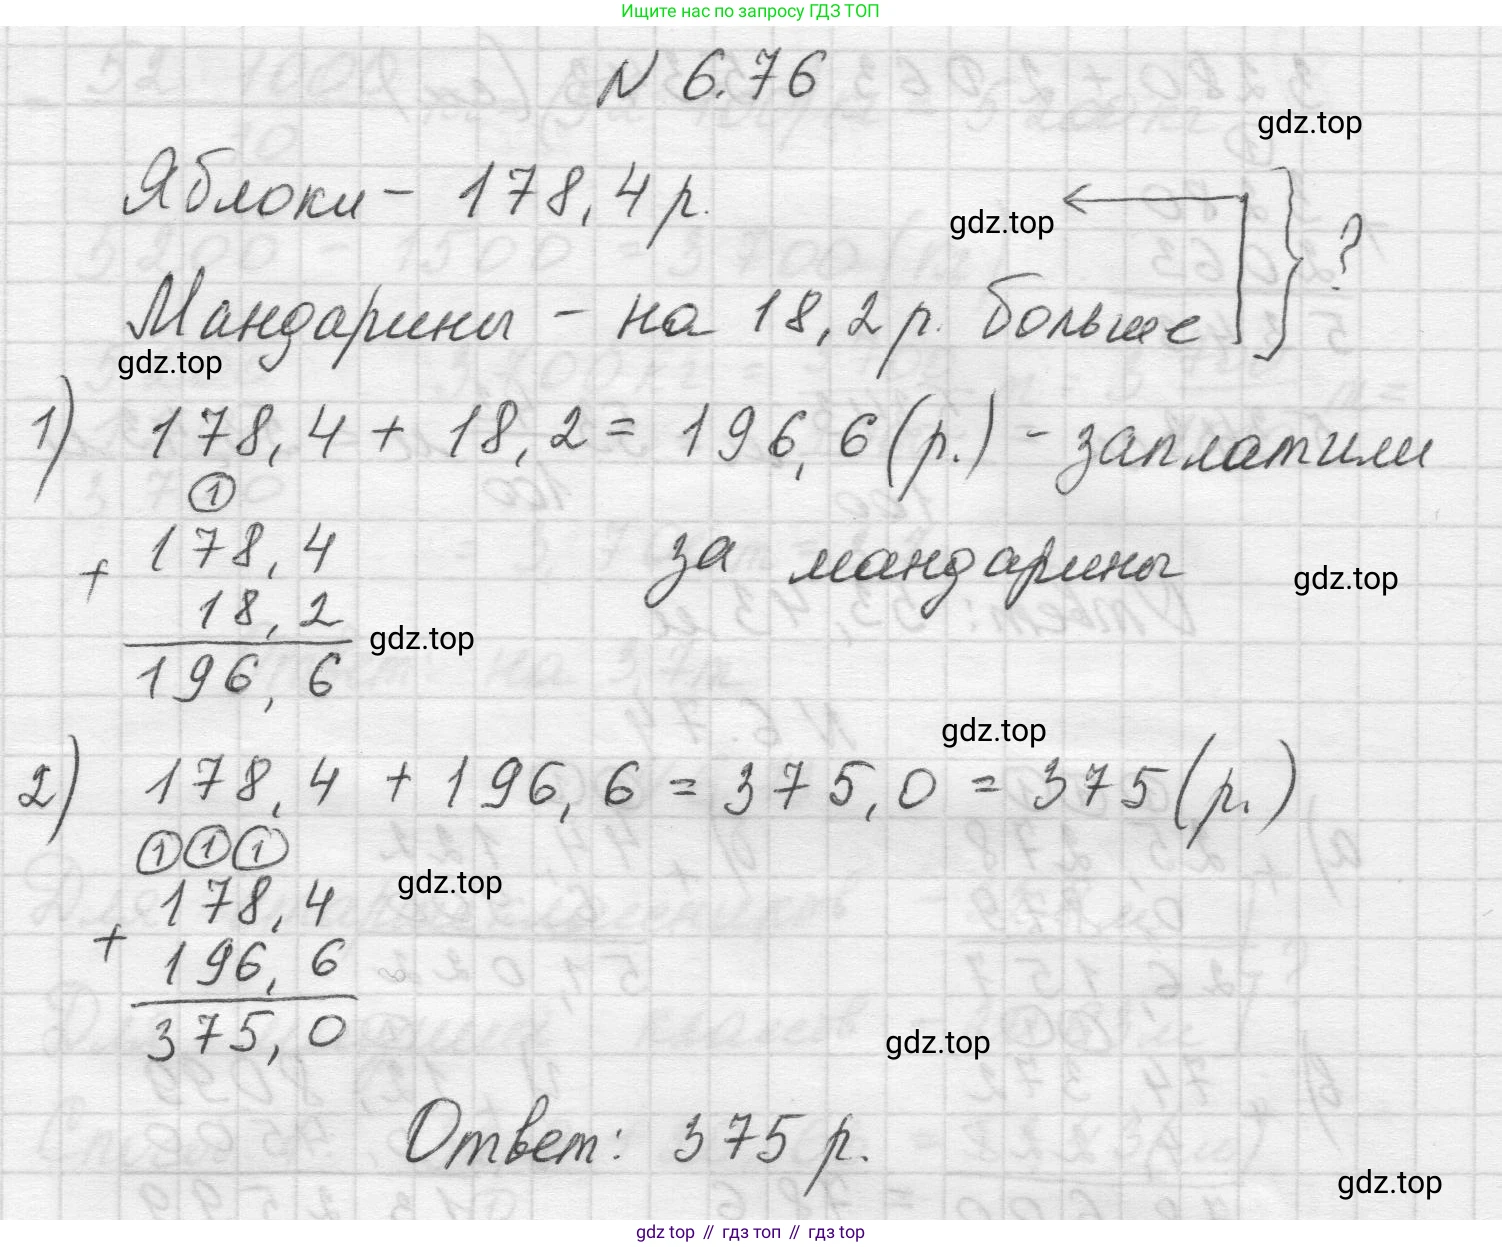 Ищите нас по запросу ГДЗ ТОП
N 6.76
gdz.top
Яблоки - 178,4 р.
gdz.top
?
Мандарины - на 18,2 р. больше
gdz.top
1) 178,4 + 18,2 = 196,6 (р.) - заплатили
за мандарины
1
178,4
+
18,2
196,6
gdz.top
gdz.top
gdz.top
2) 178,4 + 196,6 = 375,0 = 375 (р.)
1 1 1
178,4
+
196,6
375,0
gdz.top
gdz.top
Ответ: 375 р.
gdz.top
gdz top // гдз топ // гдз top